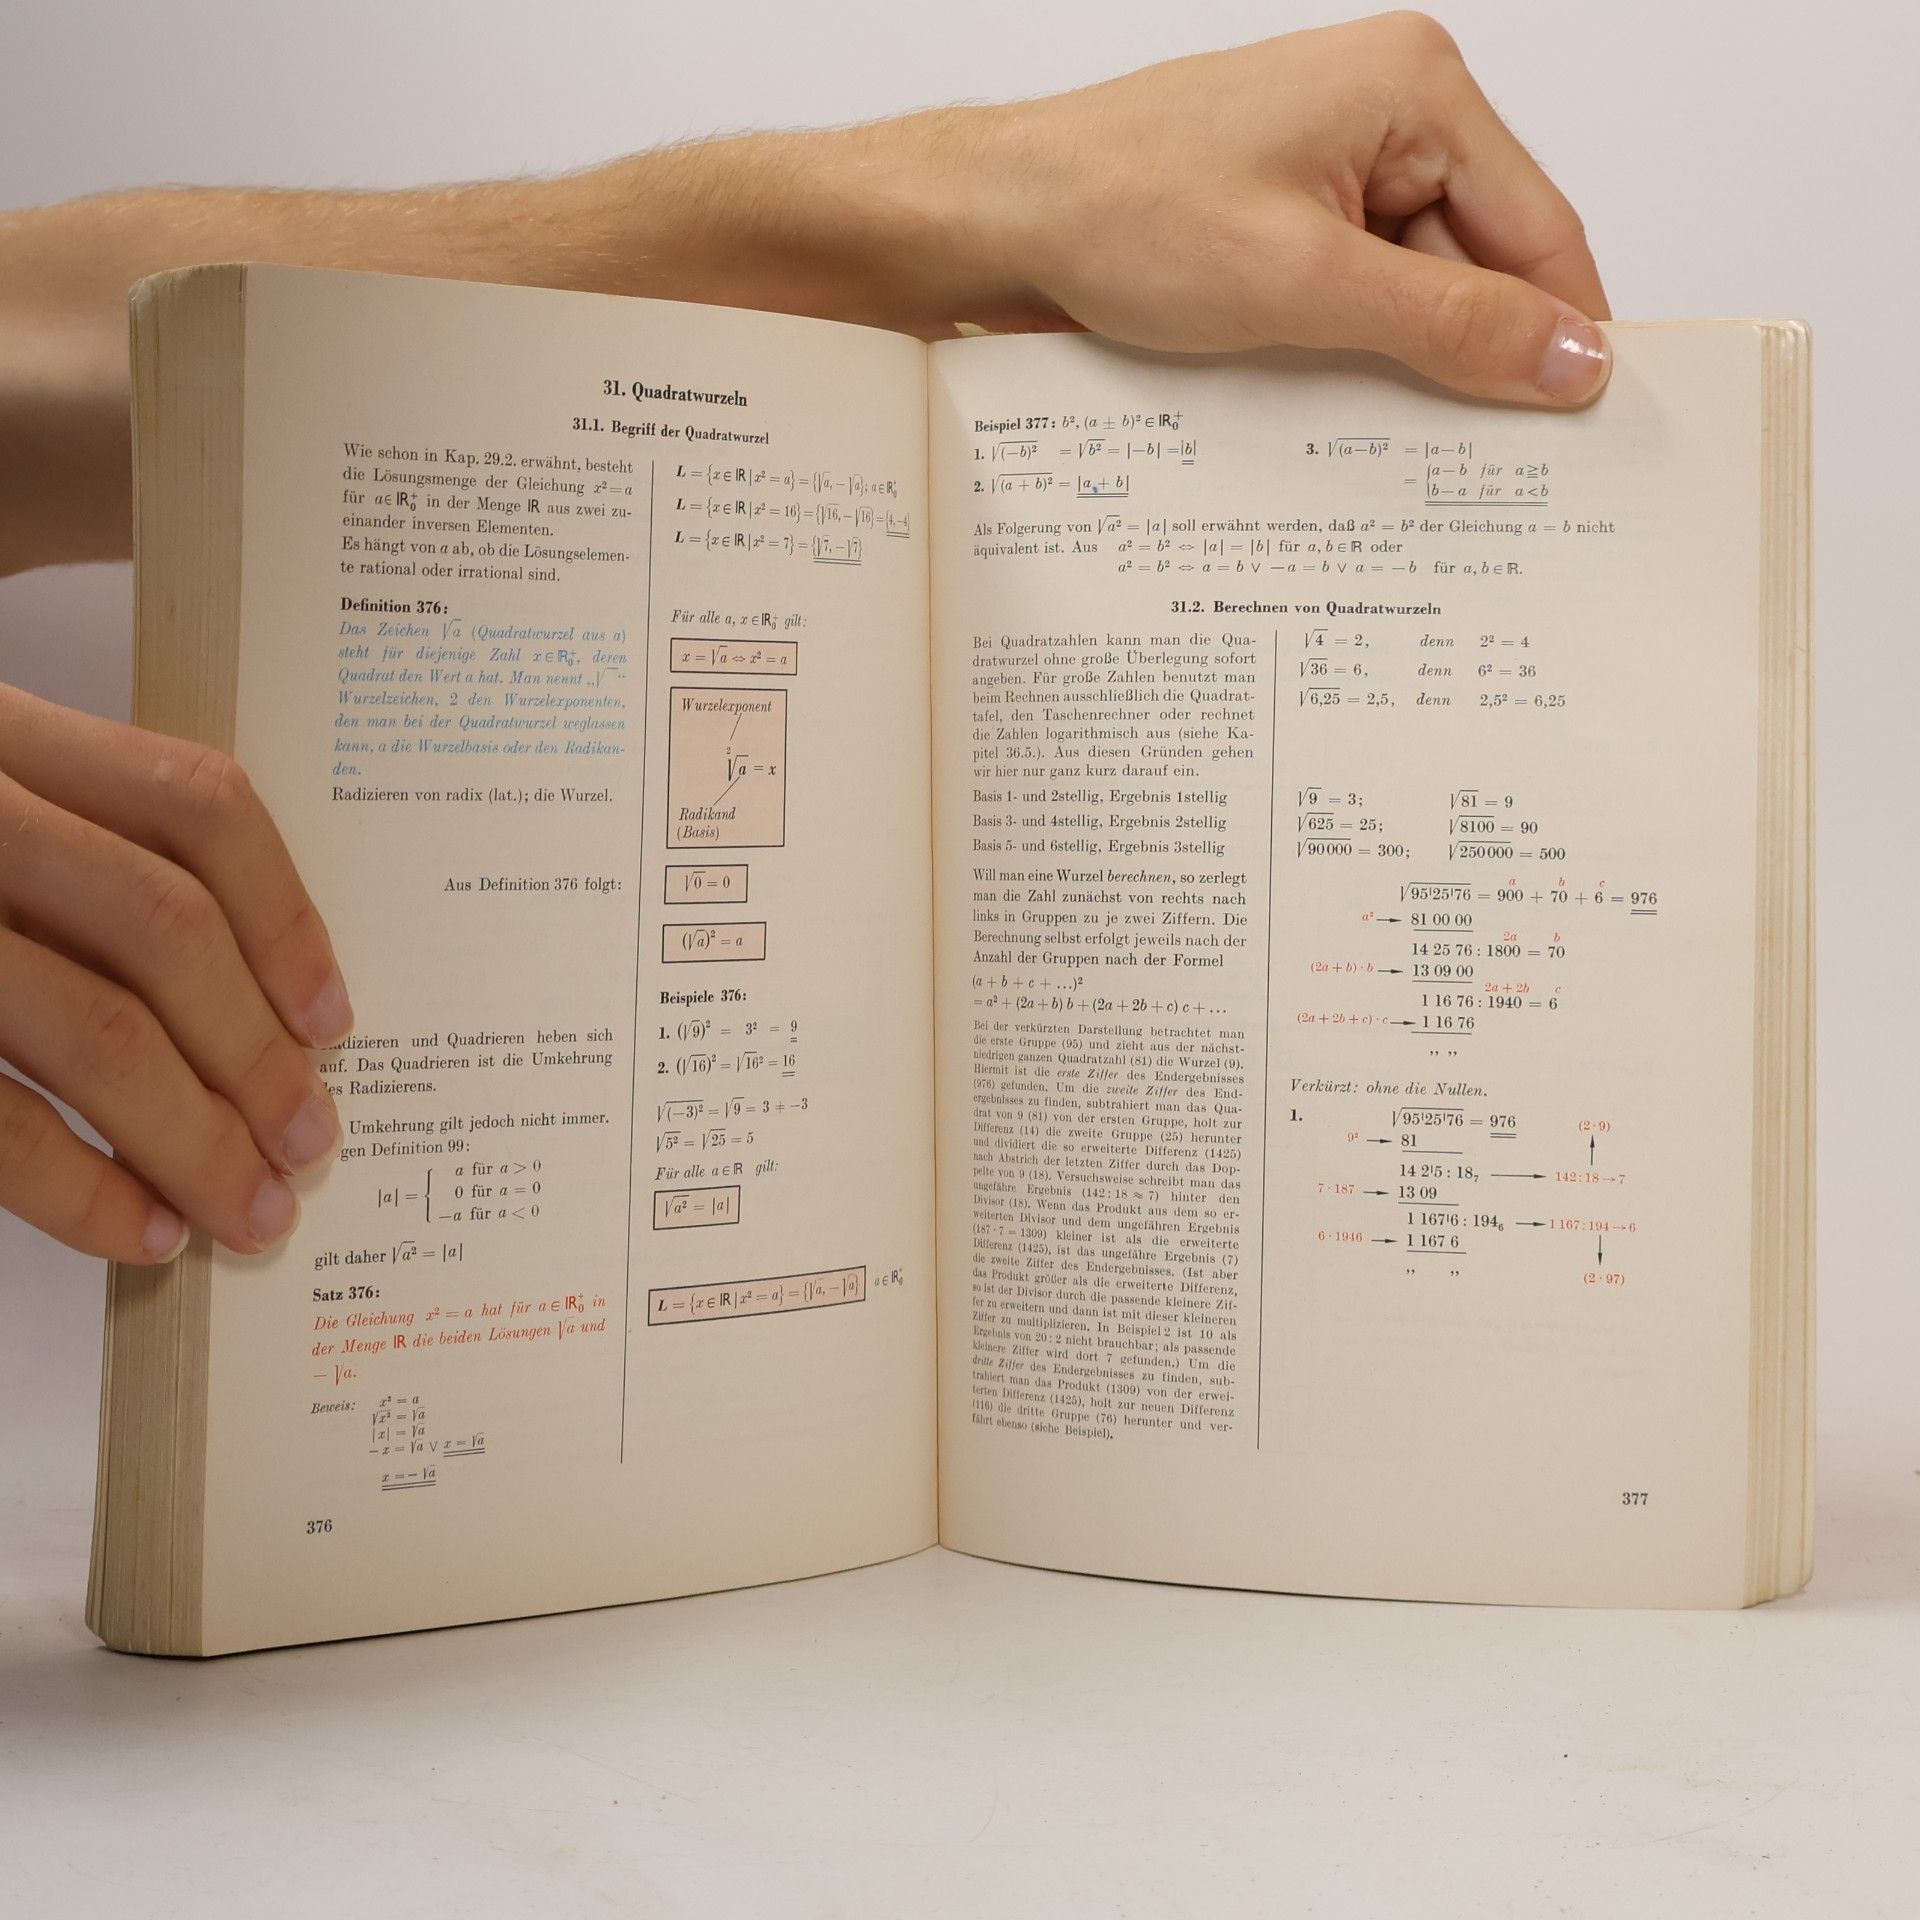 31. Quadratwurzeln
31.1. Begriff der Quadratwurzel
Wie schon in Kap. 29.2. erwähnt, besteht
die Lösungsmenge der Gleichung x² = a
für a∈ℝ₀⁺ in der Menge ℝ aus zwei zu-
einander inversen Elementen.
Es hängt von a ab, ob die Lösungselemen-
te rational oder irrational sind.
L = {x∈ℝ | x² = a} = {√a, −√a}; a∈ℝ₀⁺
L = {x∈ℝ | x² = 16} = {√16, −√16} = {4, −4}
L = {x∈ℝ | x² = 7} = {√7, −√7}
Definition 376:
Das Zeichen √a (Quadratwurzel aus a)
steht für diejenige Zahl x∈ℝ₀⁺, deren
Quadrat den Wert a hat. Man nennt „√‾“
Wurzelzeichen, 2 den Wurzelexponenten,
den man bei der Quadratwurzel weglassen
kann, a die Wurzelbasis oder den Radikan-
den.
Radizieren von radix (lat.); die Wurzel.
Für alle a, x∈ℝ₀⁺ gilt:
x = √a ⇔ x² = a
Wurzelexponent
²√a = x
Radikand
(Basis)
Aus Definition 376 folgt:
√0 = 0
(√a)² = a
Beispiele 376:
1. (√9)² = 3² = 9
2. (√16)² = √16² = 16
dizieren und Quadrieren heben sich
auf. Das Quadrieren ist die Umkehrung
es Radizierens.
Umkehrung gilt jedoch nicht immer.
gen Definition 99:
|a| = { a für a > 0
0 für a = 0
−a für a < 0
gilt daher √a² = |a|
√(−3)² = √9 = 3 ≠ −3
√5² = √25 = 5
Für alle a∈ℝ gilt:
√a² = |a|
Satz 376:
Die Gleichung x² = a hat für a∈ℝ₀⁺ in
der Menge ℝ die beiden Lösungen √a und
− √a.
L = {x∈ℝ | x² = a} = {√a, −√a} a∈ℝ₀⁺
Beweis: x² = a
√x² = √a
|x| = √a
− x = √a ∨ x = √a
x = − √a
376
Beispiel 377: b², (a ± b)² ∈ ℝ₀⁺
1. √(−b)² = √b² = |−b| = |b|
2. √(a + b)² = |a + b|
3. √(a−b)² = |a−b|
= { a−b für a≧b
b−a für a<b
Als Folgerung von √a² = |a| soll erwähnt werden, daß a² = b² der Gleichung a = b nicht
äquivalent ist. Aus a² = b² ⇔ |a| = |b| für a, b∈ℝ oder
a² = b² ⇔ a = b ∨ −a = b ∨ a = −b für a, b∈ℝ.
31.2. Berechnen von Quadratwurzeln
Bei Quadratzahlen kann man die Qua-
dratwurzel ohne große Überlegung sofort
angeben. Für große Zahlen benutzt man
beim Rechnen ausschließlich die Quadrat-
tafel, den Taschenrechner oder rechnet
die Zahlen logarithmisch aus (siehe Ka-
pitel 36.5.). Aus diesen Gründen gehen
wir hier nur ganz kurz darauf ein.
√4 = 2, denn 2² = 4
√36 = 6, denn 6² = 36
√6,25 = 2,5, denn 2,5² = 6,25
Basis 1- und 2stellig, Ergebnis 1stellig
Basis 3- und 4stellig, Ergebnis 2stellig
Basis 5- und 6stellig, Ergebnis 3stellig
√9 = 3; √81 = 9
√625 = 25; √8100 = 90
√90000 = 300; √250000 = 500
Will man eine Wurzel berechnen, so zerlegt
man die Zahl zunächst von rechts nach
links in Gruppen zu je zwei Ziffern. Die
Berechnung selbst erfolgt jeweils nach der
Anzahl der Gruppen nach der Formel
(a + b + c + …)²
= a² + (2a + b) b + (2a + 2b + c) c + …
a b c
√95'25'76 = 900 + 70 + 6 = 976
a² → 81 00 00
2a b
14 25 76 : 1800 = 70
(2a + b) · b → 13 09 00
2a + 2b c
1 16 76 : 1940 = 6
(2a + 2b + c) · c → 1 16 76
,, ,,
Bei der verkürzten Darstellung betrachtet man
die erste Gruppe (95) und zieht aus der nächst-
niedrigen ganzen Quadratzahl (81) die Wurzel (9).
Hiermit ist die erste Ziffer des Endergebnisses
(976) gefunden. Um die zweite Ziffer des End-
ergebnisses zu finden, subtrahiert man das Qua-
drat von 9 (81) von der ersten Gruppe, holt zur
Differenz (14) die zweite Gruppe (25) herunter
und dividiert die so erweiterte Differenz (1425)
nach Abstrich der letzten Ziffer durch das Dop-
pelte von 9 (18). Versuchsweise schreibt man das
ungefähre Ergebnis (142 : 18 ≈ 7) hinter den
Divisor (18). Wenn das Produkt aus dem so er-
weiterten Divisor und dem ungefähren Ergebnis
(187 · 7 = 1309) kleiner ist als die erweiterte
Differenz (1425), ist das ungefähre Ergebnis (7)
die zweite Ziffer des Endergebnisses. (Ist aber
das Produkt größer als die erweiterte Differenz,
so ist der Divisor durch die passende kleinere Zif-
fer zu erweitern und dann ist mit dieser kleineren
Ziffer zu multiplizieren. In Beispiel 2 ist 10 als
Ergebnis von 20 : 2 nicht brauchbar; als passende
kleinere Ziffer wird dort 7 gefunden.) Um die
dritte Ziffer des Endergebnisses zu finden, sub-
trahiert man das Produkt (1309) von der erwei-
terten Differenz (1425), holt zur neuen Differenz
(116) die dritte Gruppe (76) herunter und ver-
fährt ebenso (siehe Beispiel).
Verkürzt: ohne die Nullen.
1. √95'25'76 = 976 (2 · 9)
9² → 81
14 2'5 : 18₇ → 142 : 18 → 7
7 · 187 → 13 09
1 167'6 : 194₆ → 1 167 : 194 → 6
6 · 1946 → 1 167 6
,, ,, (2 · 97)
377